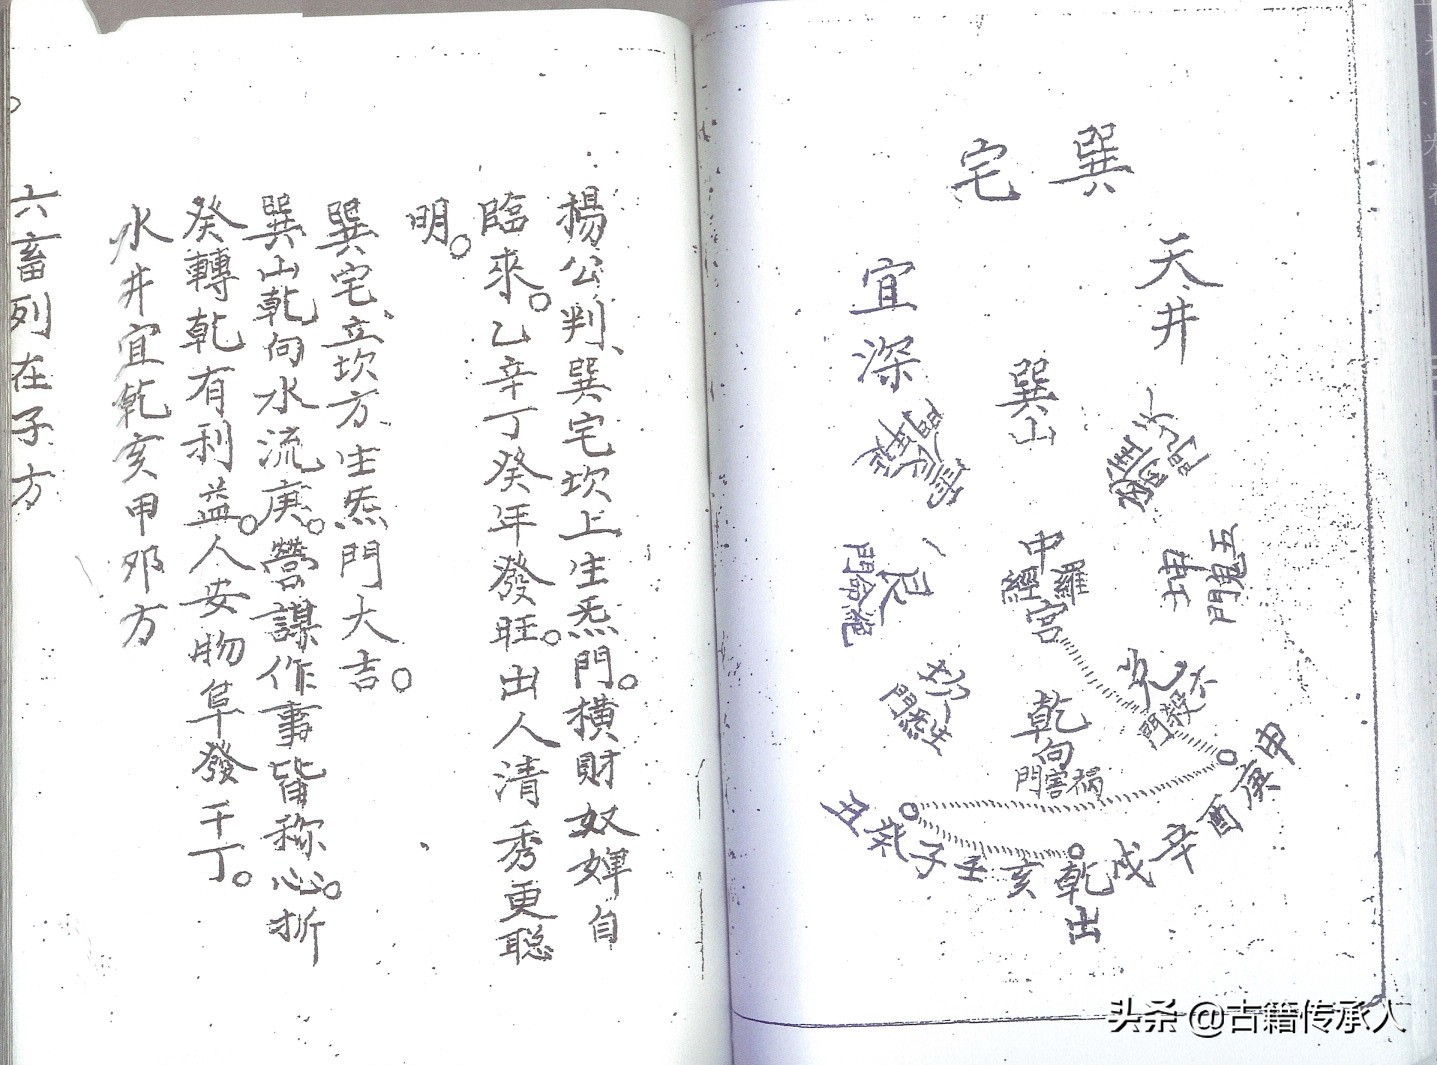 巽宅
天井
宜深
巽山
中宮
羅經
坤
五鬼門
艮
絶命門
兌
六殺門
坎
生炁門
乾向
禍害門
申庚酉辛戌乾亥壬子癸丑
出
楊公判、巽宅坎上生炁門。橫財奴婢自
臨來。乙辛丁癸年發旺。出人清秀更聪
明。
巽宅立坎方生炁門大吉。
巽山乾向水流庚。營謀作事皆称心。折
癸轉乾有利益。人安物阜發千丁。
水井宜乾亥甲卯方
六畜列在子方
头条 @古籍传承人